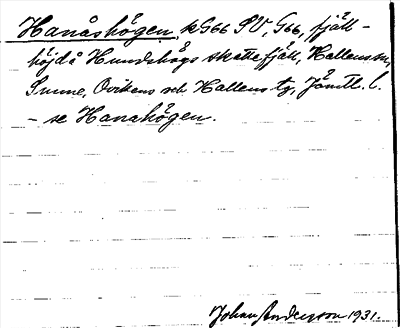 Hanåshögen, k G66 SV, G66, fjäll-
höjd å Hundshögs skattefjäll, Hallens sn,
Sunne, Ovikens och Hallens tg, Jämtl. l.
– se Hanahögen.
Johan Anderson 1931.